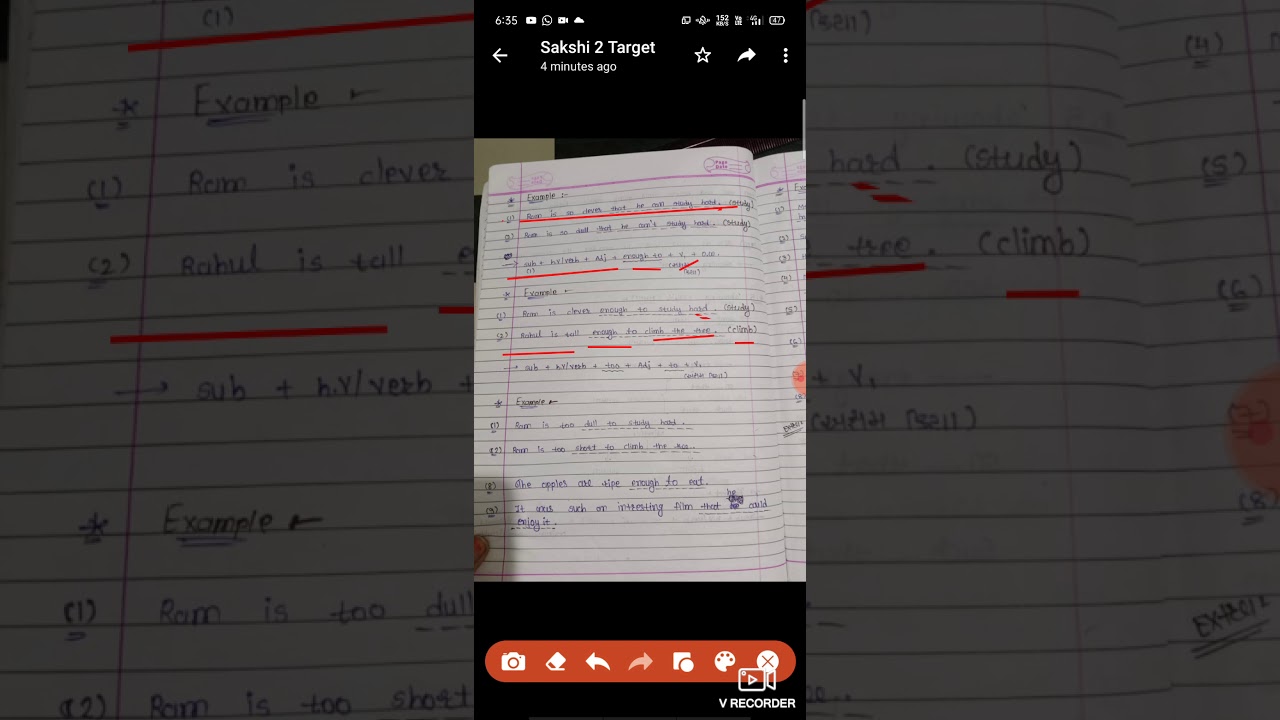 6:35
152 KB/S
47
Sakshi 2 Target
4 minutes ago
Page
Date
* Example :-
(1) Ram is so clever that he can study hard. (study)
(2) Ram is so dull that he can't study hard. (study)
→ sub + h.v/verb + Adj + enough to + V1 +
(1)
* Example
(1) Ram is clever enough to study hard. (study)
(2) Rahul is tall enough to climb the tree. (climb)
→ sub + h.v/verb + too + Adj + to + V1
* Example
(1) Ram is too dull to study hard.
(2) Ram is too short to climb the tree.
(8) The apples are ripe enough to eat.
(9) It was such an intresting film that he could
enjoy it.
V RECORDER
(1)
* Example
(1) Ram is clever
(2) Rahul is tall
→ sub + h.v/verb +
* Example
(1) Ram is too dull
(2) Ram is too short
hard. (study)
tree. (climb)
+ V1
(4)
(5)
(6)
(8)